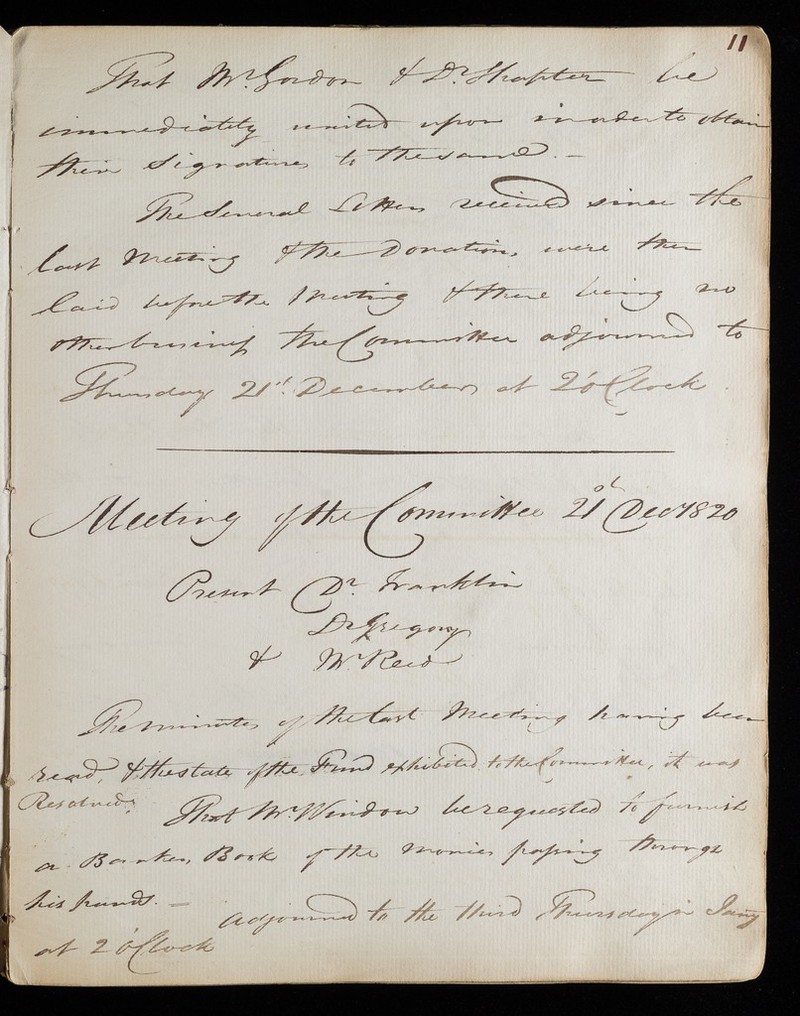 11
That Mr. Gordon & Dr. Shapter be
immediately waited upon in order to obtain
their Signatures to the same. –
The Several Letters received since the
last Meeting & the Donations were then
laid before the Meeting & there being no
other business the Committee adjourned to
Thursday 21st. December at 2 o'Clock
Meeting of the Committee 21st Decr 1820
Present Dr. Franklin
Dr Gregory
& Mr Reid
The minutes of the last Meeting having been
read, & the state of the Fund exhibited to the Committee, it was
Resolved.
That Mr. Window be requested to furnish
a Bankers Book of the monies passing through
his hands. –
Adjourned to the third Thursday in Jany
at 2 o'Clock